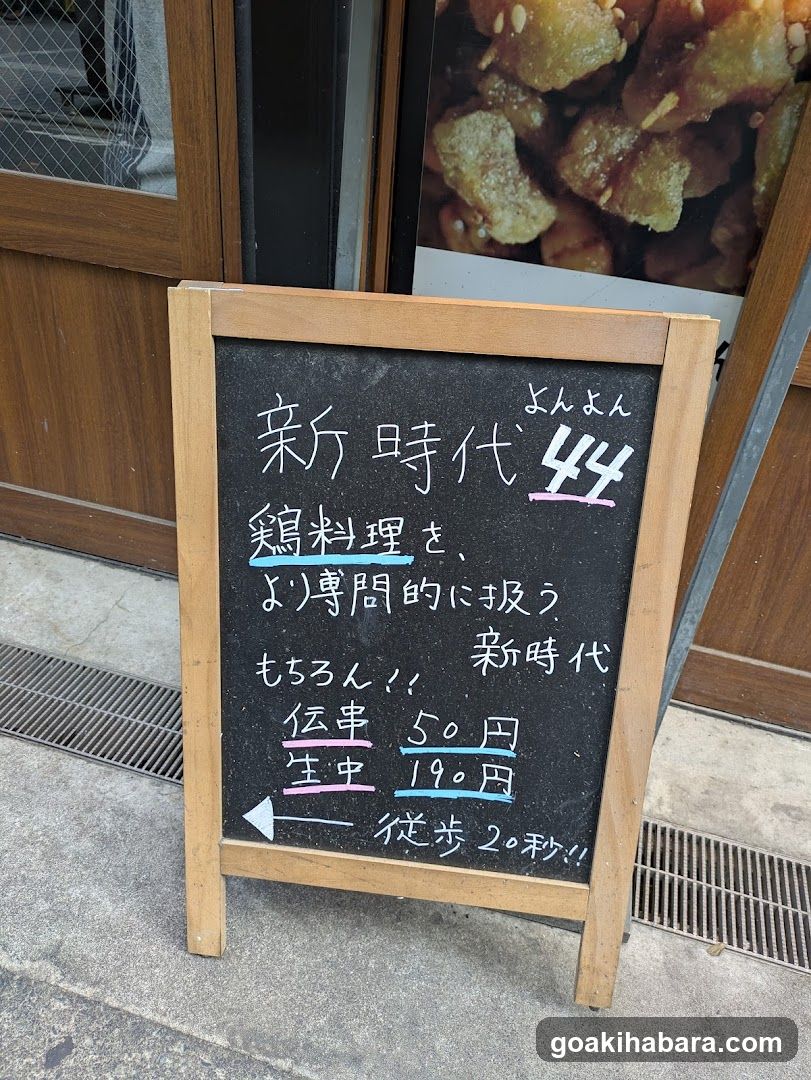 よんよん
新時代 44
鶏料理を、
より専問的に扱う
新時代
もちろん!!
伝串 50円
生中 190円
← 徒歩20秒!!
goakihabara.com